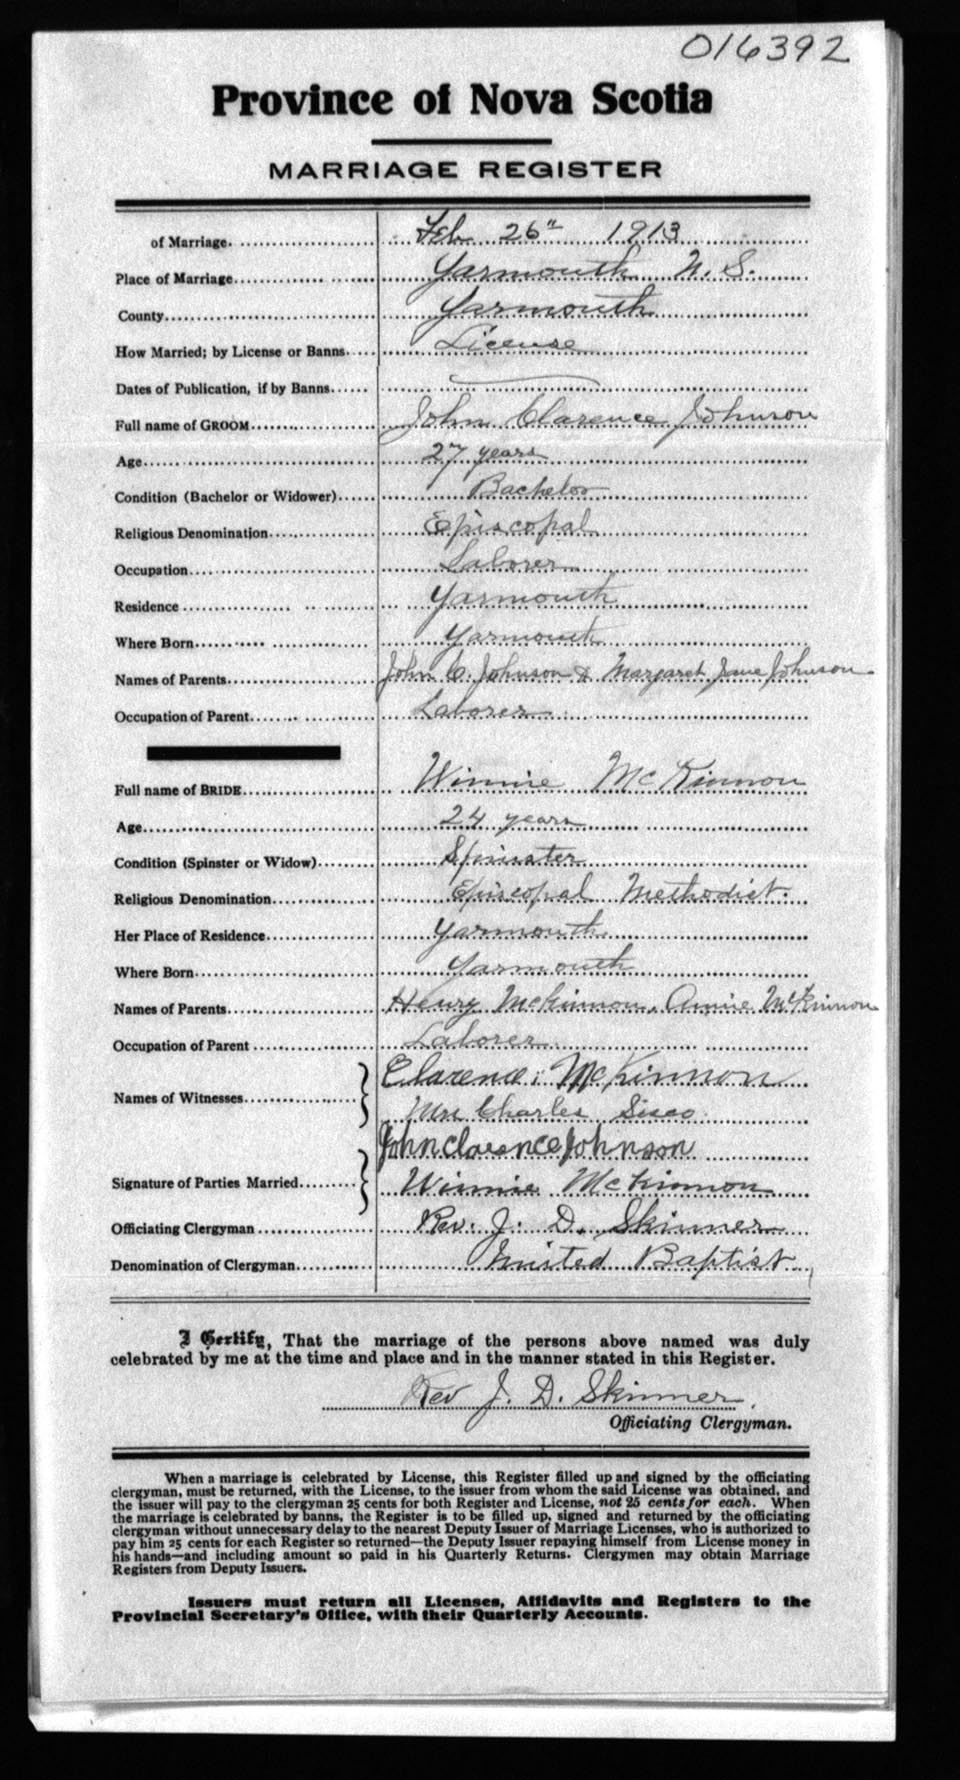 016392
Province of Nova Scotia
MARRIAGE REGISTER
of Marriage. Feb 26" 1913
Place of Marriage Yarmouth N. S.
County Yarmouth
How Married; by License or Banns License
Dates of Publication, if by Banns
Full name of GROOM John Clarence Johnson
Age 27 years
Condition (Bachelor or Widower) Bachelor
Religious Denomination Episcopal
Occupation Laborer
Residence Yarmouth
Where Born Yarmouth
Names of Parents John C. Johnson & Margaret Jane Johnson
Occupation of Parent Laborer
Full name of BRIDE Winnie McKinnon
Age 24 years
Condition (Spinster or Widow) Spinster
Religious Denomination Episcopal Methodist.
Her Place of Residence Yarmouth
Where Born Yarmouth
Names of Parents Henry McKinnon, Annie McKinnon
Occupation of Parent Laborer
Names of Witnesses Clarence McKinnon
Mrs Charles Sisco
John Clarence Johnson
Signature of Parties Married Winnie McKinnon
Officiating Clergyman Rev. J. D. Skinner
Denomination of Clergyman United Baptist
I Certify, That the marriage of the persons above named was duly
celebrated by me at the time and place and in the manner stated in this Register.
Rev J. D. Skinner.
Officiating Clergyman.
When a marriage is celebrated by License, this Register filled up and signed by the officiating
clergyman, must be returned, with the License, to the issuer from whom the said License was obtained, and
the issuer will pay to the clergyman 25 cents for both Register and License, not 25 cents for each. When
the marriage is celebrated by banns, the Register is to be filled up, signed and returned by the officiating
clergyman without unnecessary delay to the nearest Deputy Issuer of Marriage Licenses, who is authorized to
pay him 25 cents for each Register so returned—the Deputy Issuer repaying himself from License money in
his hands—and including amount so paid in his Quarterly Returns. Clergymen may obtain Marriage
Registers from Deputy Issuers.
Issuers must return all Licenses, Affidavits and Registers to the
Provincial Secretary's Office, with their Quarterly Accounts.